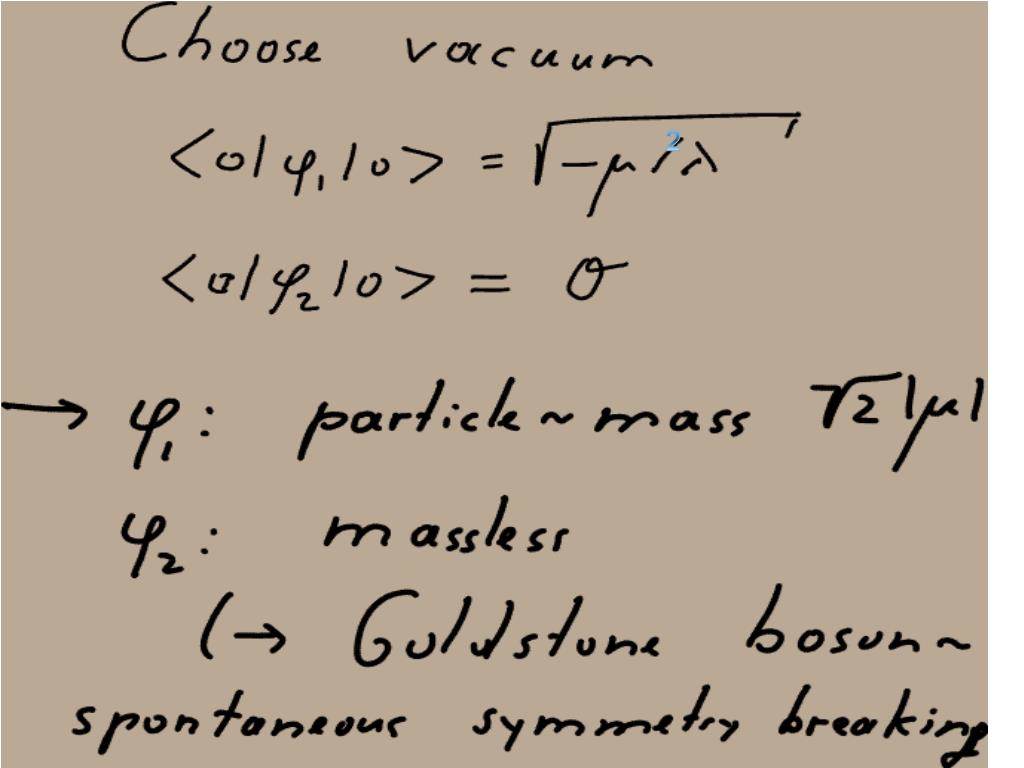 Choose vacuum
<0|φ₁|0> = √-μ²/λ
<0|φ₂|0> = 0
→ φ₁: particle ~ mass √2|μ|
φ₂: massless
(→ Goldstone boson ~
spontaneous symmetry breaking